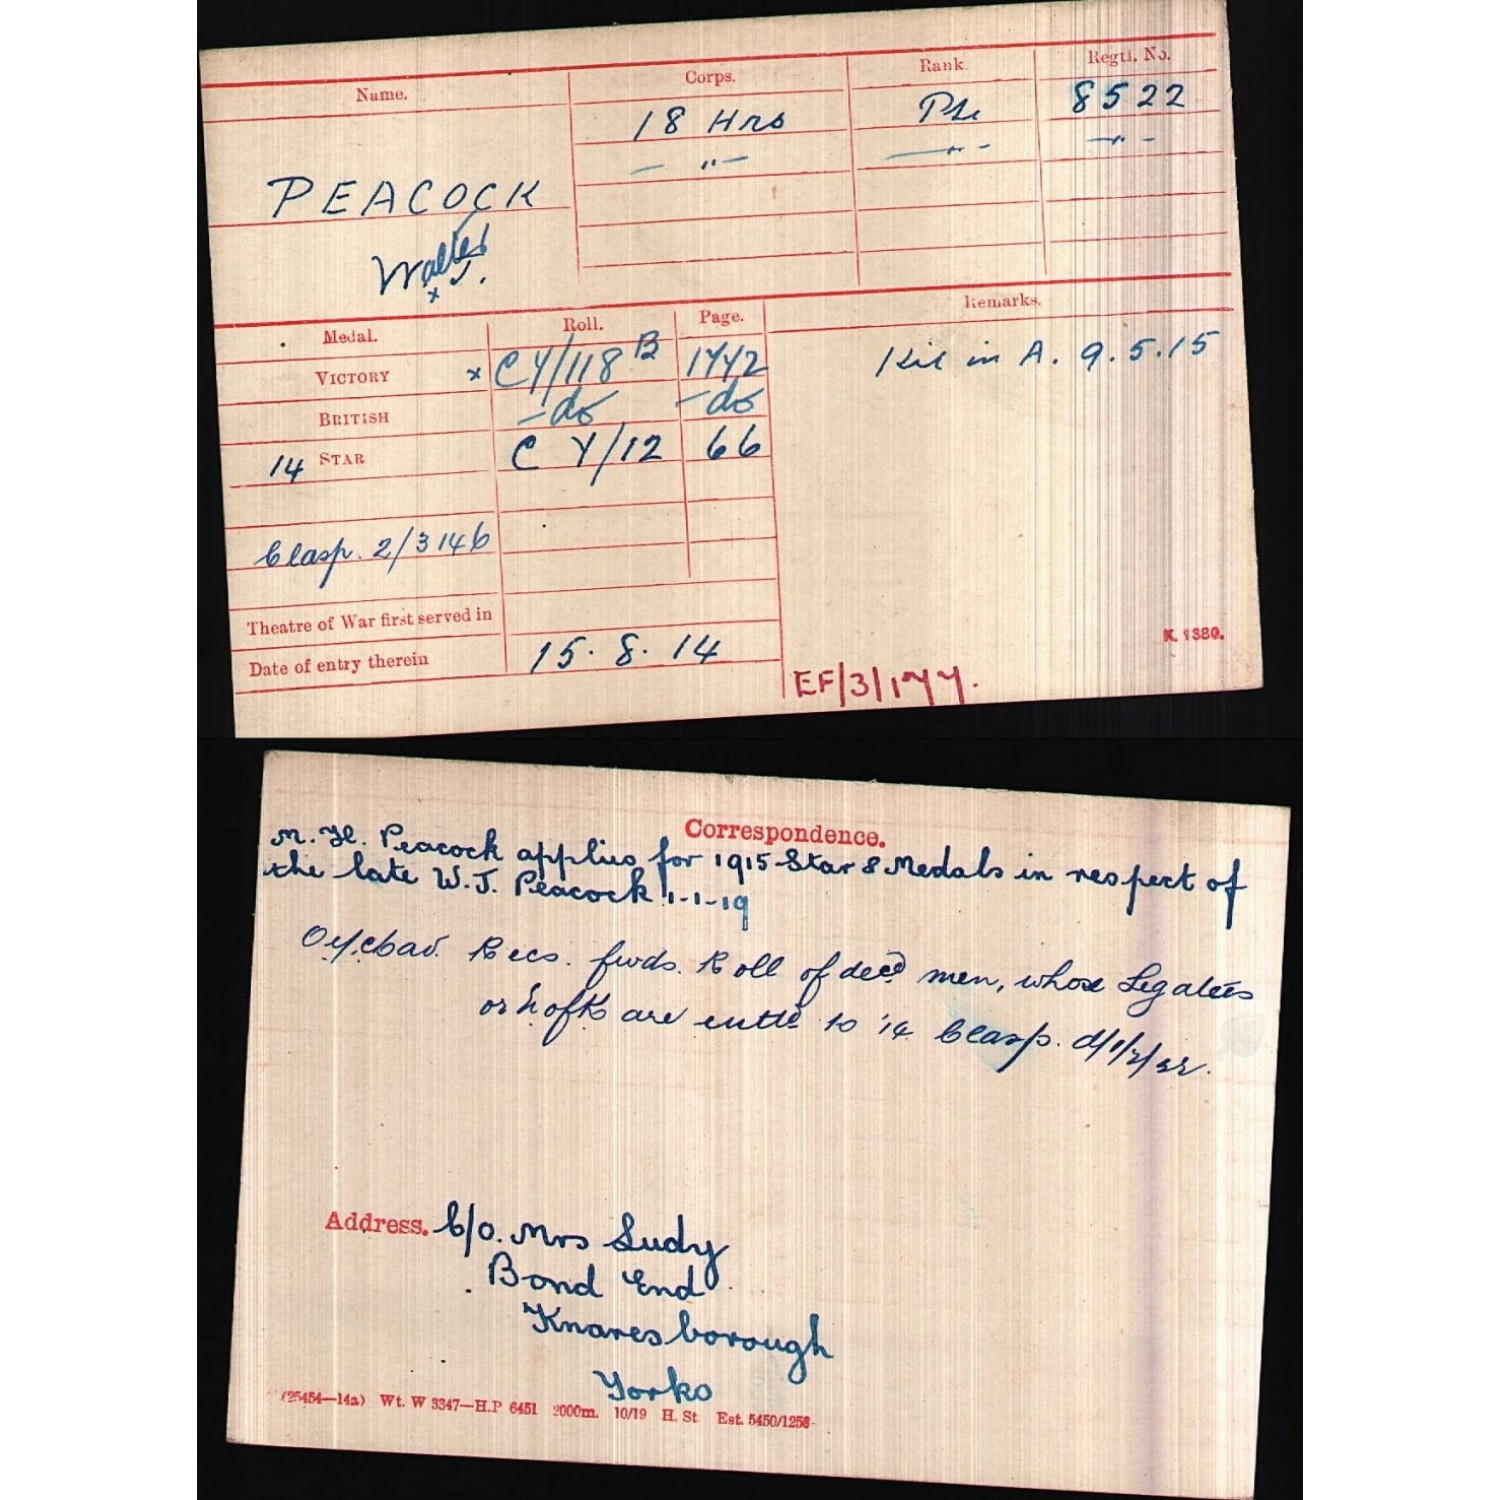 Name.	Corps.	Rank	Regtl. No.
18 Hrs	Pte	8522
— " —	— " -	— " -
PEACOCK
Walter J.
x
Medal.	Roll.	Page.	Remarks.
VICTORY	x CY/118 B	1772	Kil in A. 9.5.15
BRITISH	-do	-do
14 STAR	C Y/12	66
Clasp. 2/3146
Theatre of War first served in
Date of entry therein	15. 8. 14
K. 1380.
EF/3/177.
Correspondence.
M. H. Peacock applies for 1915 Star & Medals in respect of
the late W. J. Peacock 1-1-19
Recs. fwds. Roll of decd men, whose Legatees
or N of K are enttd to '14 Clasp. d/
Address. C/o. Mrs Ludy
Bond End
Knaresborough
Yorks
(25454—14a) Wt. W 3347—H.P 6451 2000m. 10/19 H. St Est. 5450/1258